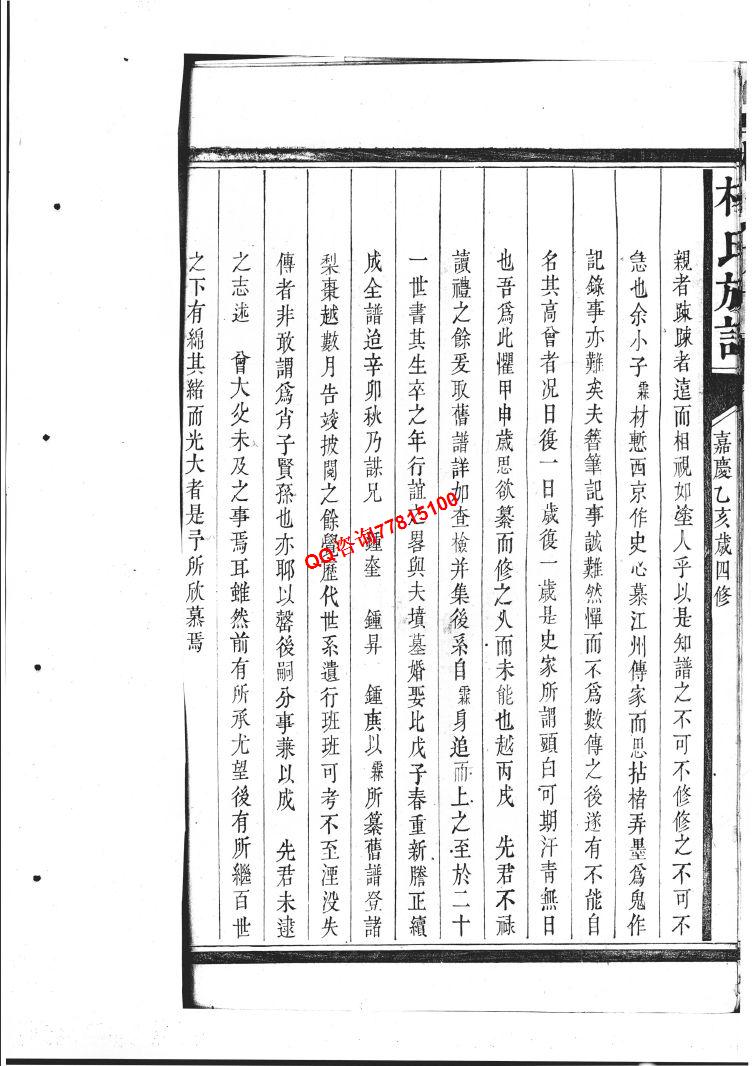 氏族譜
嘉慶乙亥歲四修
親者踈踈者逺而相視如塗人乎以是知譜之不可不修修之不可不
急也余小子霖材慙西京作史心慕江州傳家而思拈楮弄墨爲鬼作
記錄事亦難矣夫簪筆記事誠難然憚而不爲數傳之後遂有不能自
名其高曾者况日復一日歲復一歲是史家所謂頭白可期汗青無日
也吾爲此懼甲申歲思欲纂而修之乆而未能也越丙戌 先君不禄
讀禮之餘爰取舊譜詳加查檢并集後系自霖身追而上之至於二十
一世書其生卒之年行誼之畧與夫墳墓婚娶比戊子春重新謄正續
成全譜迨辛卯秋乃謀兄 鍾奎 鍾昇 鍾庚以霖所纂舊譜登諸
梨棗越數月告竣披閱之餘覺歷代世系遺行班班可考不至湮没失
傳者非敢謂爲肖子賢孫也亦耶以罄後嗣分事兼以成 先君未逮
之志述 曾大父未及之事焉耳雖然前有所承尤望後有所繼百世
之下有綿其緒而光大者是予所欣慕焉
QQ咨询77815100